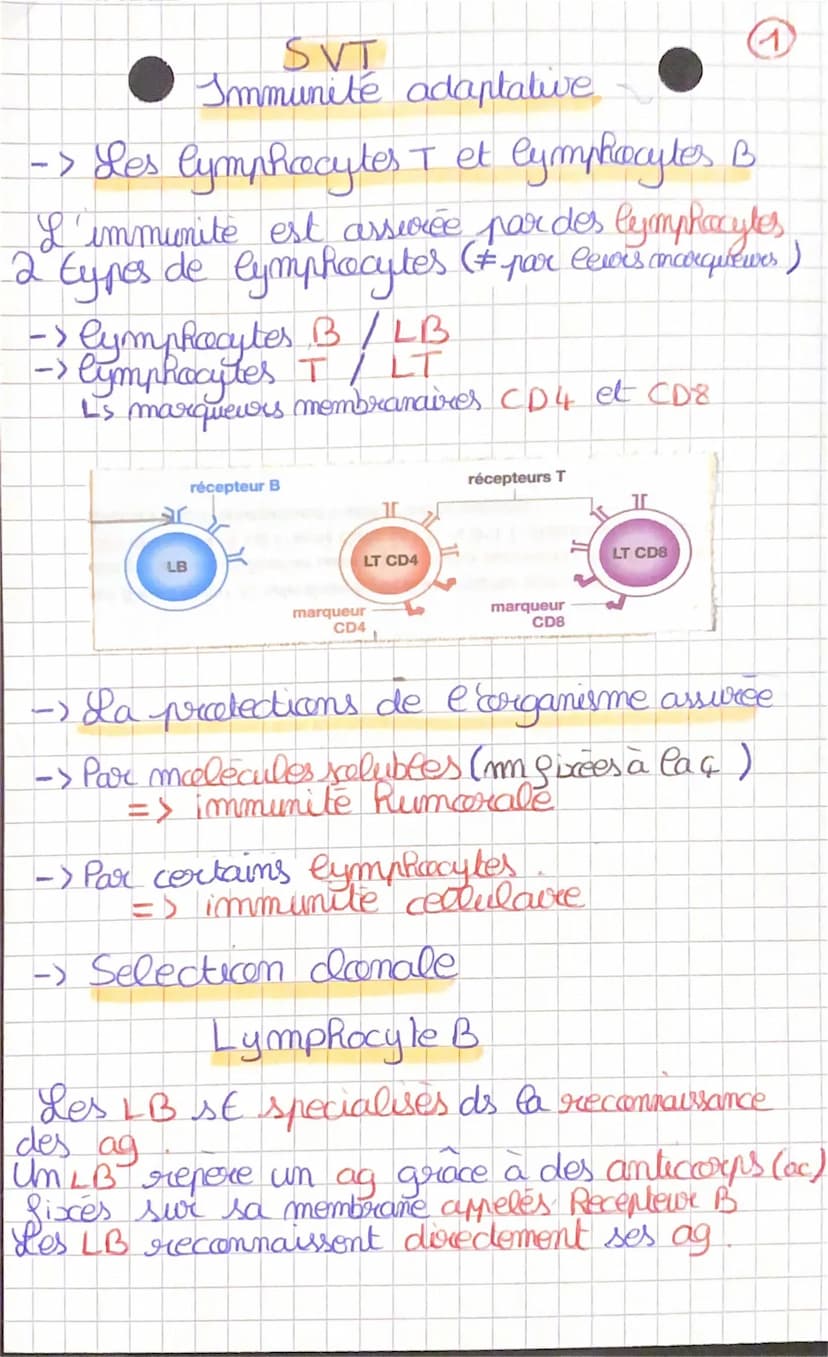 SVT
1
Immunité adaptative
-> Les lymphocytes T et lymphocytes B
L'immunité est assurée par des lymphocytes
2 types de lymphocytes (≠ par leurs marqueurs)
-> lymphocytes B / LB
-> lymphocytes T / LT
↳ marqueurs membranaires CD4 et CD8
récepteur B
récepteurs T
LB
LT CD4
LT CD8
marqueur
CD4
marqueur
CD8
-> La protections de l'organisme assurée
-> Par molécules solubles (nn fixées à la ç)
=> immunité humorale
-> Par certains lymphocytes.
=> immunité cellulaire
-> Selection clonale
Lymphocyte B
Les LB st specialisés ds la reconnaissance
des ag.
Un LB repère un ag grâce à des anticorps (ac)
fixés sur sa membrane appelés Recepteur B
Les LB reconnaissent directement ses ag.